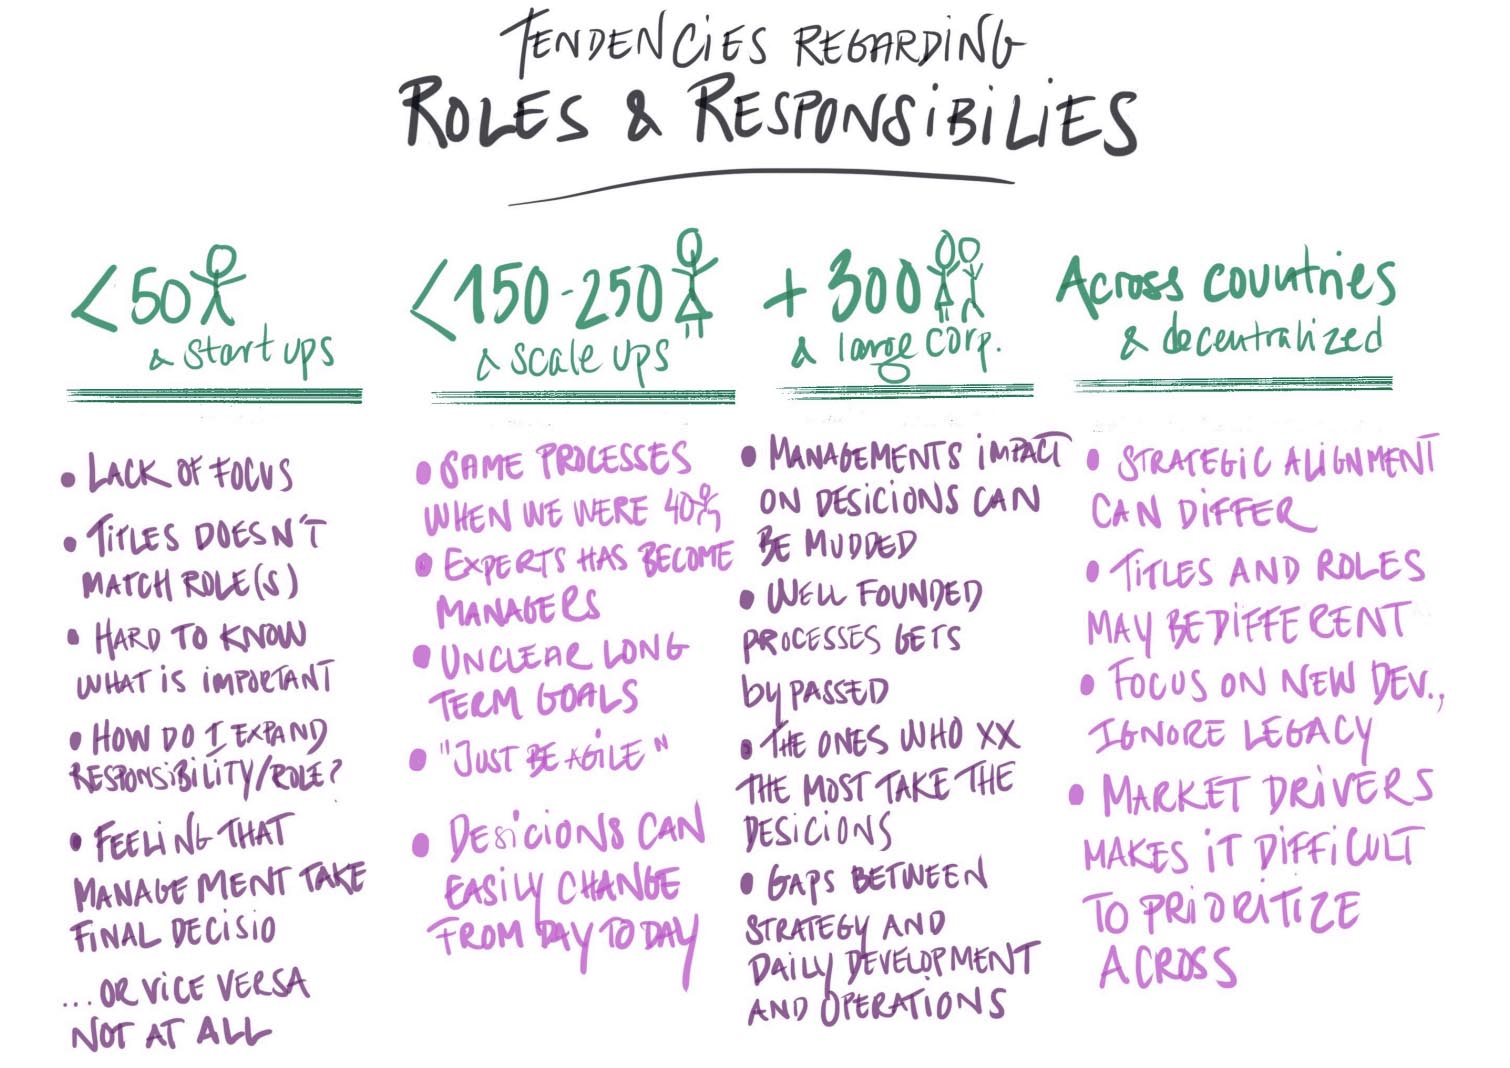 TENDENCIES REGARDING
ROLES & RESPONSIBILIES
<50
& startups
• LACK OF FOCUS
• TITLES DOESN'T
MATCH ROLE(S)
• HARD TO KNOW
WHAT IS IMPORTANT
• HOW DO I EXPAND
RESPONSIBILITY/ROLE?
• FEELING THAT
MANAGEMENT TAKE
FINAL DECISIO
...OR VICE VERSA
NOT AT ALL
<150-250
& scale ups
• SAME PROCESSES
WHEN WE WERE 40
• EXPERTS HAS BECOME
MANAGERS
• UNCLEAR LONG
TERM GOALS
• "JUST BE AGILE"
• DESICIONS CAN
EASILY CHANGE
FROM DAY TO DAY
+ 300
& large corp.
• MANAGEMENTS IMPACT
ON DESICIONS CAN
BE MUDDED
• WELL FOUNDED
PROCESSES GETS
by PASSED
• THE ONES WHO XX
THE MOST TAKE THE
DESICIONS
• GAPS BETWEEN
STRATEGY AND
DAILY DEVELOPMENT
AND OPERATIONS
Across countries
& decentralized
• STRATEGIC ALIGNMENT
CAN DIFFER
• TITLES AND ROLES
MAY BE DIFFERENT
• FOCUS ON NEW DEV.,
IGNORE LEGACY
• MARKET DRIVERS
MAKES IT DIFFICULT
TO PRIORITIZE
ACROSS